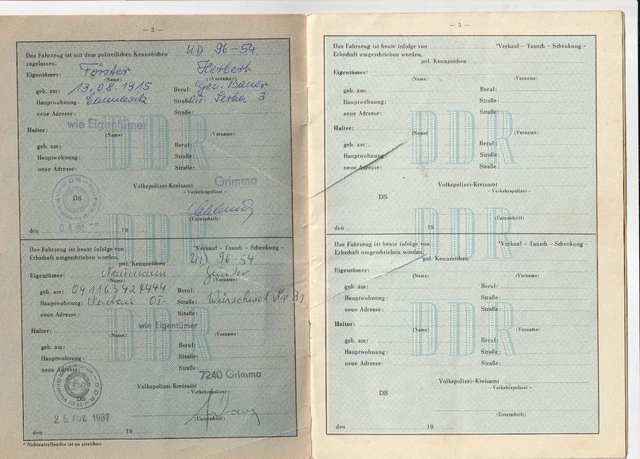 — 2 —
Das Fahrzeug ist mit dem polizeilichen Kennzeichen UD 96-54
zugelassen.
Eigentümer: Förster Herbert
(Name) (Vorname)
geb. am: 13.08.1915 Beruf: Gen. Bauer
Hauptwohnung: Straße: 3
neue Adresse: Straße:
Halter: wie Eigentümer
(Name) (Vorname)
geb. am: Beruf:
Hauptwohnung: Straße:
neue Adresse: Straße:
DDR
Volkspolizei-Kreisamt Grimma
– Verkehrspolizei –
DS
(Unterschrift)
den 19
Das Fahrzeug ist heute infolge von *Verkauf – Tausch – Schenkung –
Erbschaft umgeschrieben worden.
pol. Kennzeichen UD 96-54
Eigentümer: Naumann Günter
(Name) (Vorname)
geb. am: 041163424444 Beruf:
Hauptwohnung: Nerchau OT. Straße:
neue Adresse: Straße:
Halter: wie Eigentümer
(Name) (Vorname)
geb. am: Beruf:
Hauptwohnung: Straße:
neue Adresse: Straße:
DDR
Volkspolizei-Kreisamt 7240 Grimma
– Verkehrspolizei –
DS
25. AUG. 1987
(Unterschrift)
den 19
* Nichtzutreffendes ist zu streichen
— 3 —
Das Fahrzeug ist heute infolge von *Verkauf – Tausch – Schenkung –
Erbschaft umgeschrieben worden.
pol. Kennzeichen
Eigentümer:
(Name) (Vorname)
geb. am: Beruf:
Hauptwohnung: Straße:
neue Adresse: Straße:
Halter:
(Name) (Vorname)
geb. am: Beruf:
Hauptwohnung: Straße:
neue Adresse: Straße:
DDR
Volkspolizei-Kreisamt
– Verkehrspolizei –
DS
(Unterschrift)
den 19
DDR
Das Fahrzeug ist heute infolge von *Verkauf – Tausch – Schenkung –
Erbschaft umgeschrieben worden.
pol. Kennzeichen
Eigentümer:
(Name) (Vorname)
geb. am: Beruf:
Hauptwohnung: Straße:
neue Adresse: Straße:
Halter:
(Name) (Vorname)
geb. am: Beruf:
Hauptwohnung: Straße:
neue Adresse: Straße:
DDR
Volkspolizei-Kreisamt
– Verkehrspolizei –
DS
(Unterschrift)
den 19